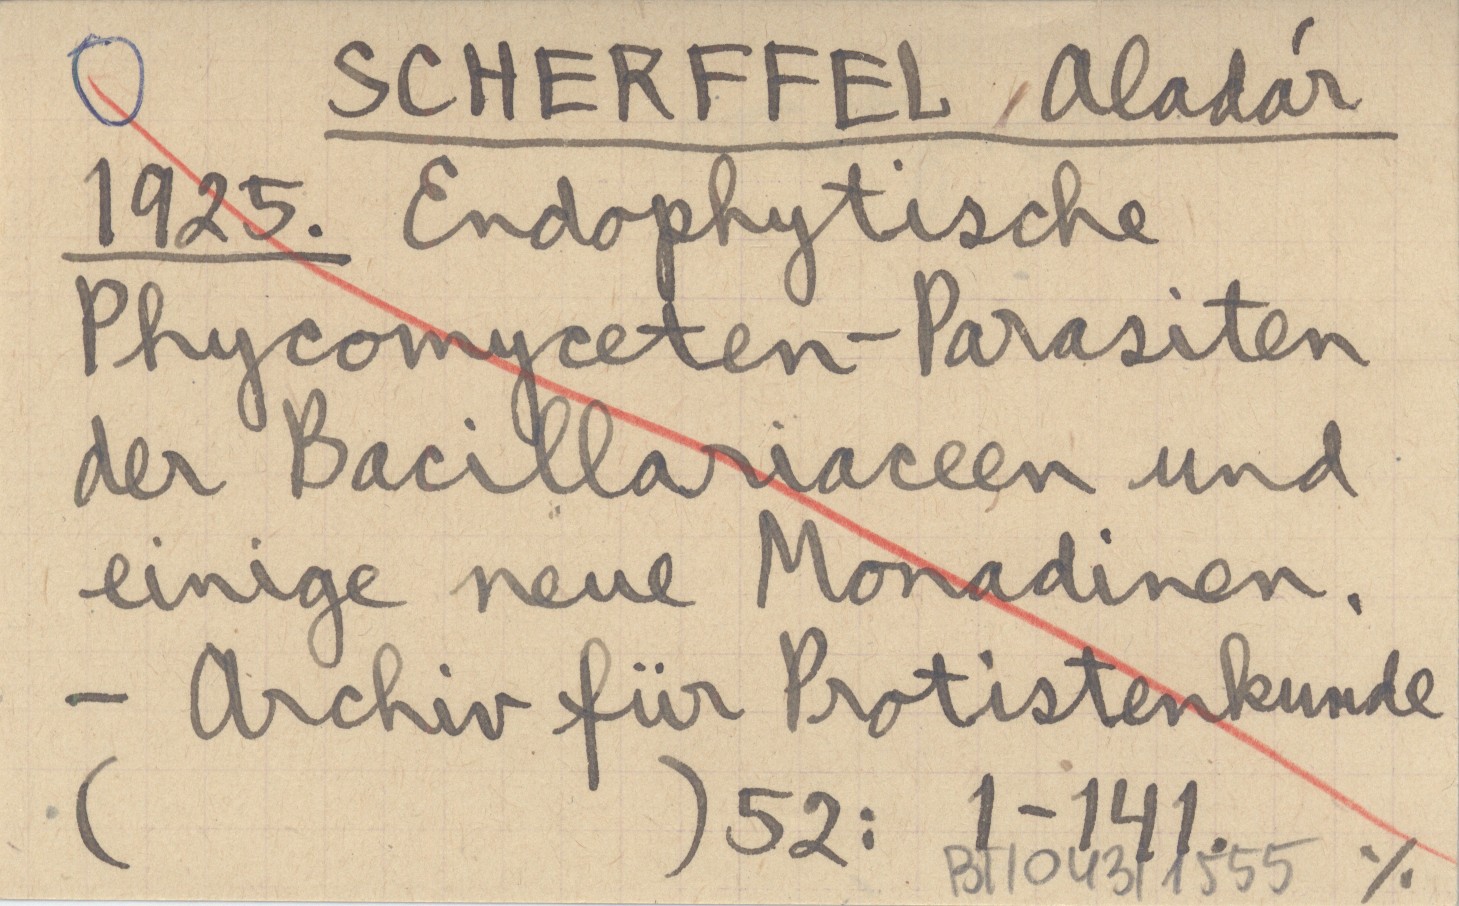 SCHERFFEL, Aladár
1925. Endophytische
Phycomyceten-Parasiten
der Bacillariaceen und
einige neue Monadinen.
- Archiv für Protistenkunde
( ) 52: 1-141.
BTI043/1555 ./.